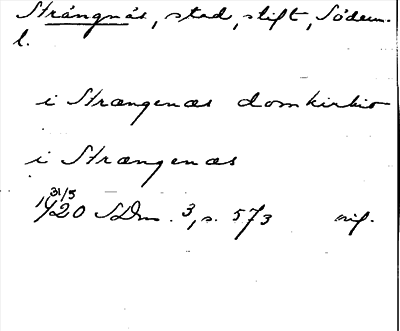 Strängnäs, stad, stift, Söderm.
l.
i Strængenæs domkirkio
i Strængenæs
31/5
1420 SDm. 3, s. 573 nif.